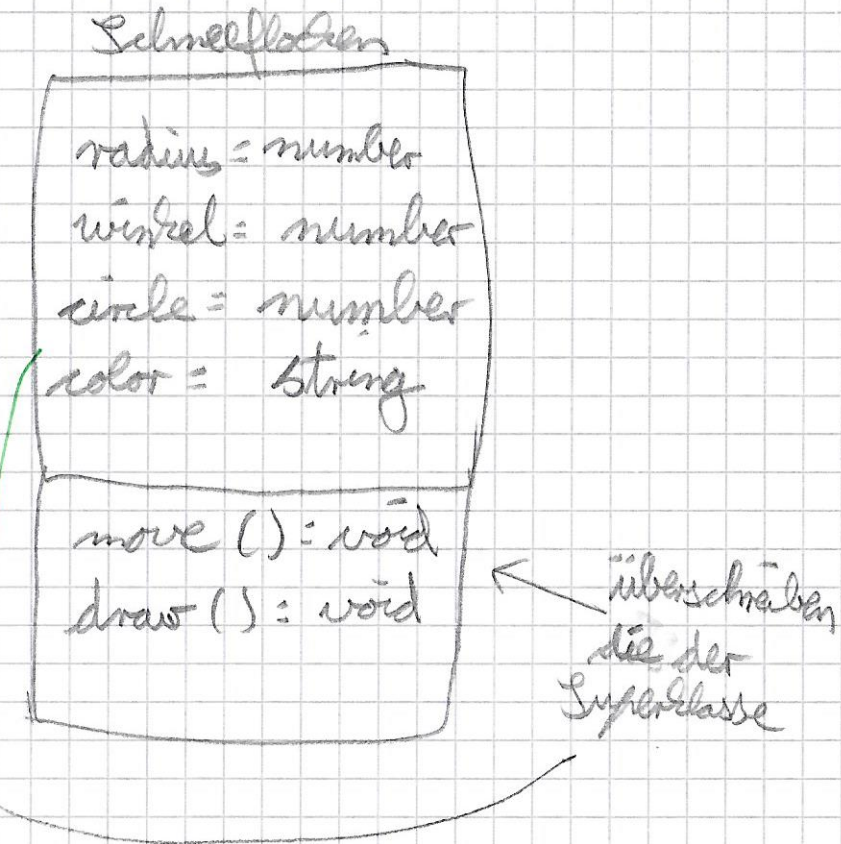 Schneeflocken
radius = number
winkel = number
circle = number
color = string
move () : void
draw () : void
überschreiben
die der
Superklasse